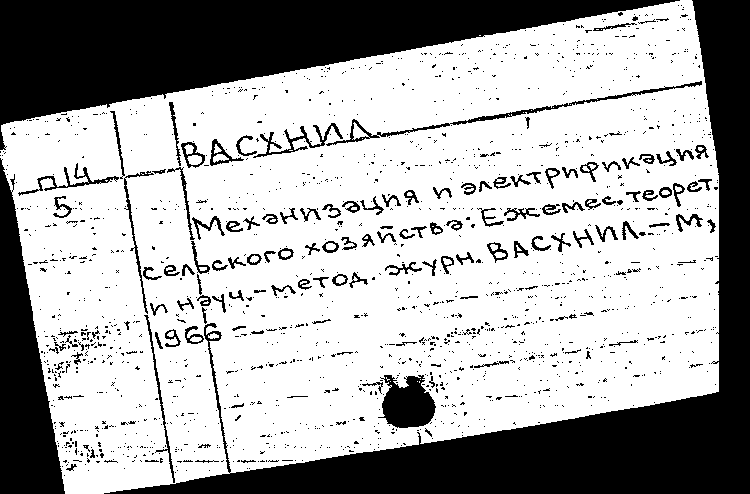 ВАСХНИЛ.
п14
5
Механизация и электрификация
сельского хозяйства: Ежемес. теорет.
и науч.-метод. журн. ВАСХНИЛ. – М,
1966 –